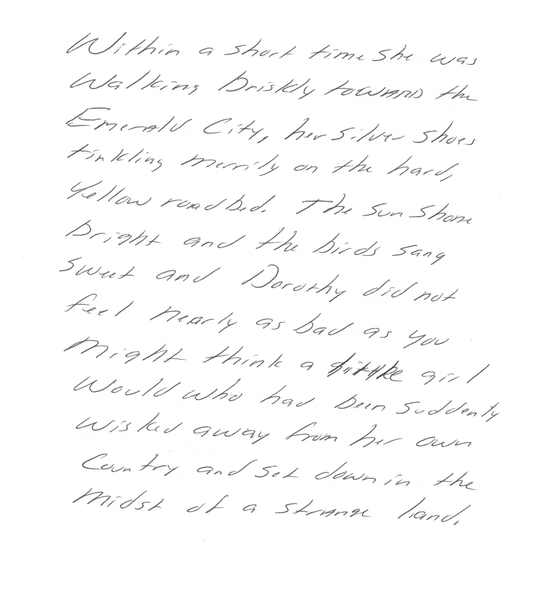 Within a short time she was
walking briskly towards the
Emerald City, her silver shoes
tinkling merrily on the hard,
yellow roadbed. The sun shone
bright and the birds sang
sweet and Dorothy did not
feel nearly as bad as you
might think a little girl
would who had been suddenly
wisked away from her own
country and set down in the
midst of a strange land.